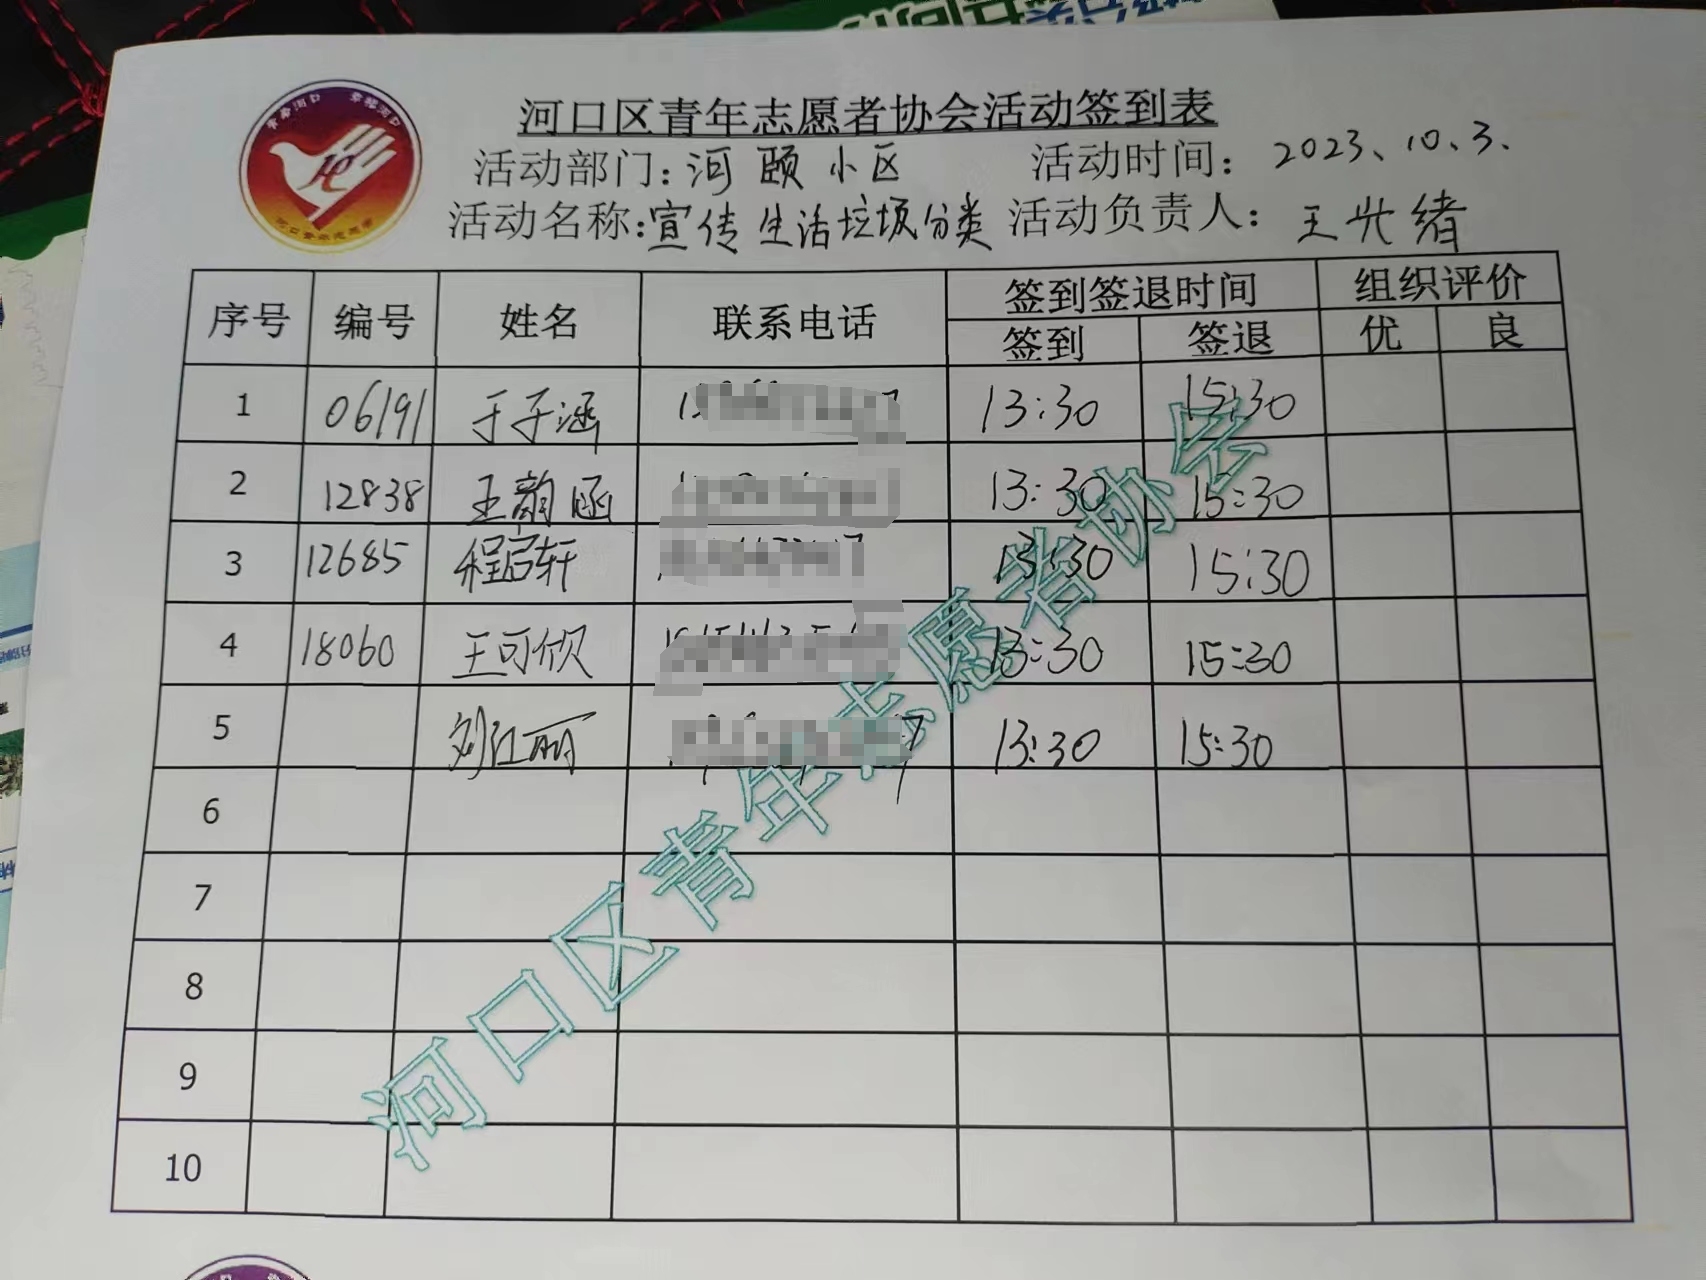 河口区青年志愿者协会活动签到表
活动部门:河颐小区 活动时间: 2023、10、3、
活动名称:宣传生活垃圾分类 活动负责人: 王兴绪
序号 编号 姓名 联系电话 签到签退时间 组织评价
签到 签退 优 良
1 06191 于子涵 13:30 15:30
2 12838 王韵涵 13:30 15:30
3 12685 程启轩 13:30 15:30
4 18060 王可 13:30 15:30
5 刘红丽 13:30 15:30
6
7
8
9
10
河口区青年志愿者协会